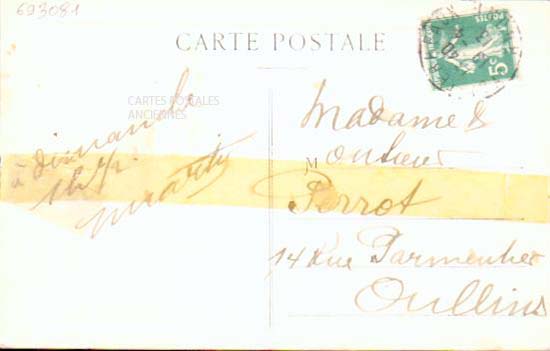 693081
CARTE POSTALE
CARTES POSTALES
ANCIENNES
POSTES
5c
à dimanche
Madame &
M
Perrot
14 Rue Parmentier
Oullins